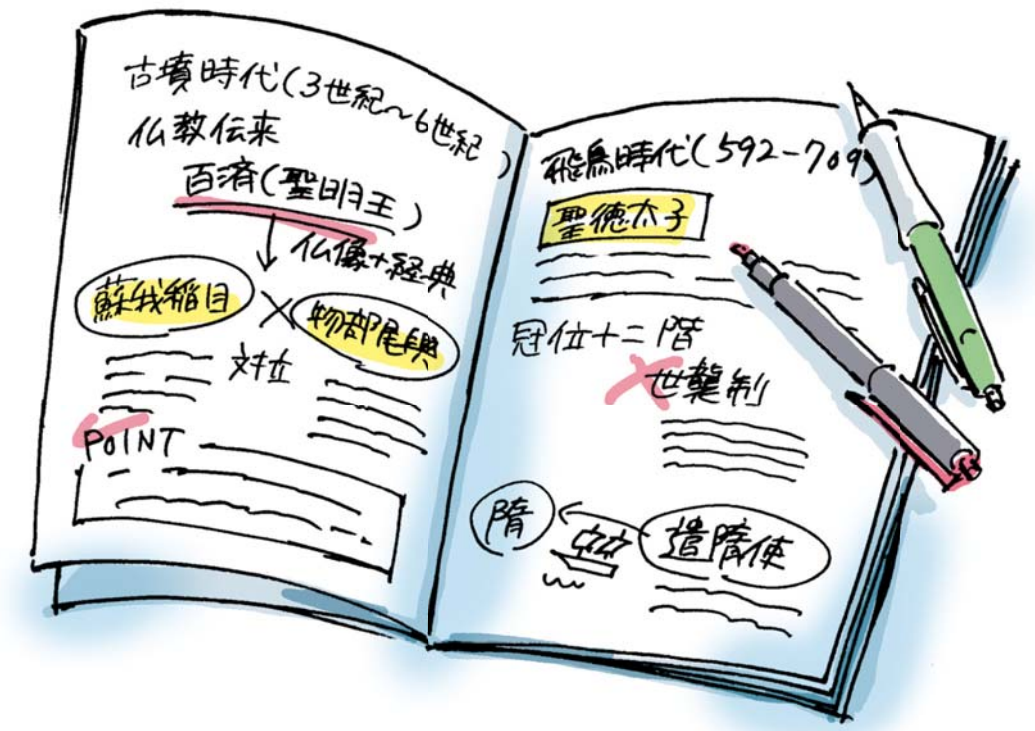 古墳時代(3世紀~6世紀)
仏教伝来
百済(聖明王)
仏像+経典
蘇我稲目×物部尾輿
対立
POINT
飛鳥時代(592-709)
聖徳太子
冠位十二階
×世襲制
隋
遣隋使